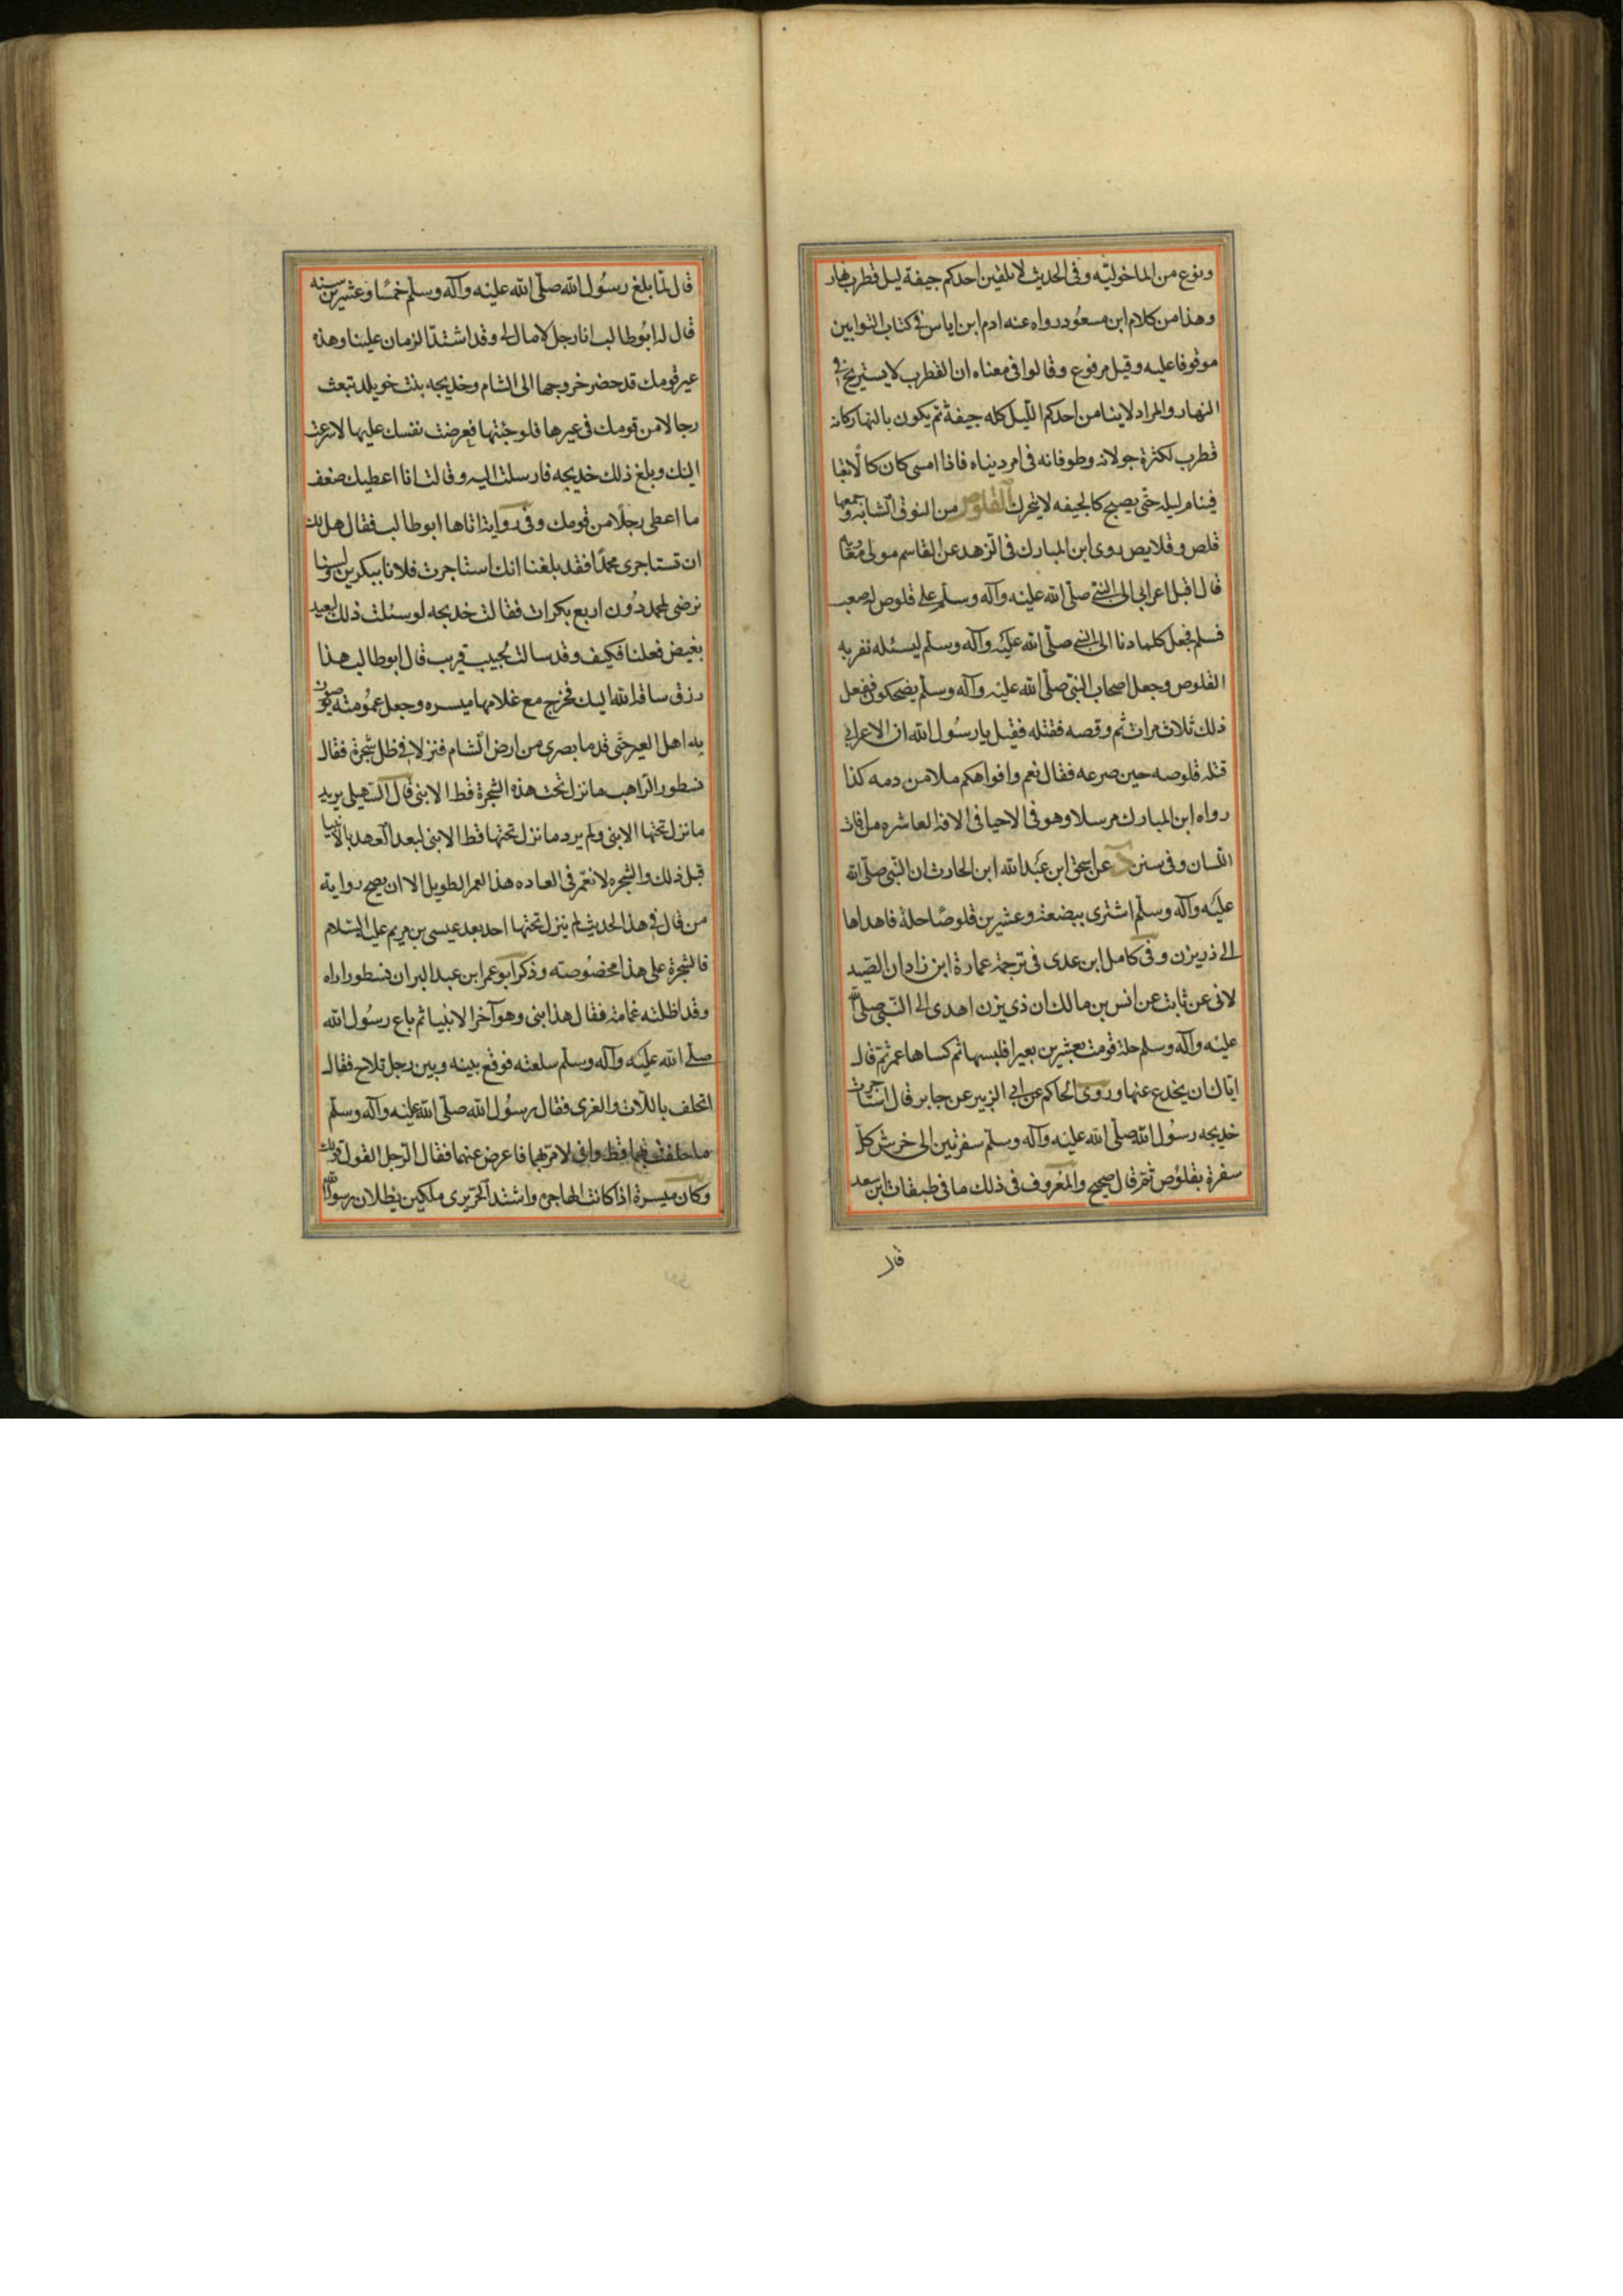 ونوع من الماخولیه وفی الحدیث لا یلقین احدکم جیفة لیل قطرب نهار
وهذا من کلام ابن مسعود رواه عنه ادم ابن ایاس فی کتاب الثوابین
موقوفا علیه وقیل مرفوع وقالوا فی معناه ان القطرب لا یستریح فی
النهار والمراد لا ینامن احدکم اللیل کله جیفة ثم یکون بالنهار کانه
قطرب لکثرة جولانه وطوفانه فی امر دیناه فاذا امسی کان کالا تعبا
فینام لیله حتی یصبح کالجیفه لا یتحرک القلوص من النوق الشابه وجمعها
قلص وقلایص روی ابن المبارک فی الزهد عن القاسم مولی معویه
قال اقبل اعرابی الی النبی صلی الله علیه وآله وسلم علی قلوص له صعب
فسلم فجعل کلما دنا الی النبی صلی الله علیه وآله وسلم لیسئله نفر به
القلوص وجعل اصحاب النبی صلی الله علیه وآله وسلم یضحکون ففعل
ذلک ثلاث مرات ثم وقصه فقتله فقیل یا رسول الله ان الاعرابی
قتله قلوصه حین صرعه فقال نعم وافواهکم ملا من دمه کذا
رواه ابن المبارک مرسلا وهو فی الاحیا فی الافة العاشره من افات
اللسان وفی سنن عن اسحق ابن عبد الله ابن الحارث ان النبی صلی الله
علیه وآله وسلم اشتری ببضعة وعشرین قلوصا حلة فاهداها
الی ذریزن وفی کامل ابن عدی فی ترجمة عمارة ابن زادان الصید
لانی عن ثابت عن انس بن مالک ان ذی یزن اهدی الی النبی صلی الله
علیه وآله وسلم حلة قومت بعشرین بعیرا فلبسها ثم کساها عمر ثم قال
ایاک ان یخدع عنها وروی الحاکم عن ابی الزبیر عن جابر قال استاجرت
خدیجه رسول الله صلی الله علیه وآله وسلم سفرتین الی خرش کل
سفرة بقلوص ثم قال صحیح والمعروف فی ذلک ما فی طبقات ابن سعد
قال
قال لما بلغ رسول الله صلی الله علیه وآله وسلم خمسا وعشرین سنه
قال له ابوطالب انا رجل لا مال لی وقد اشتد الزمان علینا وهذه
عیر قومک قد حضر خروجها الی الشام وخدیجه بنت خویلد تبعث
رجالا من قومک فی عیرها فلو جئتها فعرضت نفسک علیها لاسرعت
الیک وبلغ ذلک خدیجه فارسلت الیه وقالت انا اعطیک ضعف
ما اعطی رجلا من قومک وفی روایة اتاها ابوطالب فقال هل لک
ان تستاجری محمدا فقد بلغنا انک استاجرت فلانا ببکرین ولسنا
نرضی لمحمد دون اربع بکرات فقالت خدیجه لو سئلت ذلک لبعید
بغیض فعلنا فکیف وقد سالت لحبیب قریب قال ابوطالب هذا
رزق ساقه الله الیک فخرج مع غلامها میسره وجعل عمومته یوصون
به اهل العیر حتی قدما بصری من ارض الشام فنزلا فی ظل شجرة فقال
نسطور الراهب ما نزل تحت هذه الشجرة قط الا نبی قال السهیلی یرید
ما نزل تحتها الا نبی ولم یرد ما نزل تحتها قط الا نبی لبعد العهد بالانبیا
قبل ذلک والشجره لا تعمر فی العاده هذا العمر الطویل الا ان یصح روایة
من قال فی هذا الحدیث لم ینزل تحتها احد بعد عیسی بن مریم علیه السلام
فالشجرة علی هذا مخصوصته وذکر ابو عمر ابن عبد البر ان نسطورا راه
وقد اظلته غمامة فقال هذا نبی وهو آخر الانبیا ثم باع رسول الله
صلی الله علیه وآله وسلم سلعته فوقع بینه وبین رجل تلاح فقال
اتحلف باللات والغری فقال رسول الله صلی الله علیه وآله وسلم
ما حلفت بهما قط وانی لامر بهما فاعرض عنهما فقال الرجل القول قولک
وکان میسرة اذا کانت الهاجرة واشتد الحر یری ملکین یظلان رسول الله